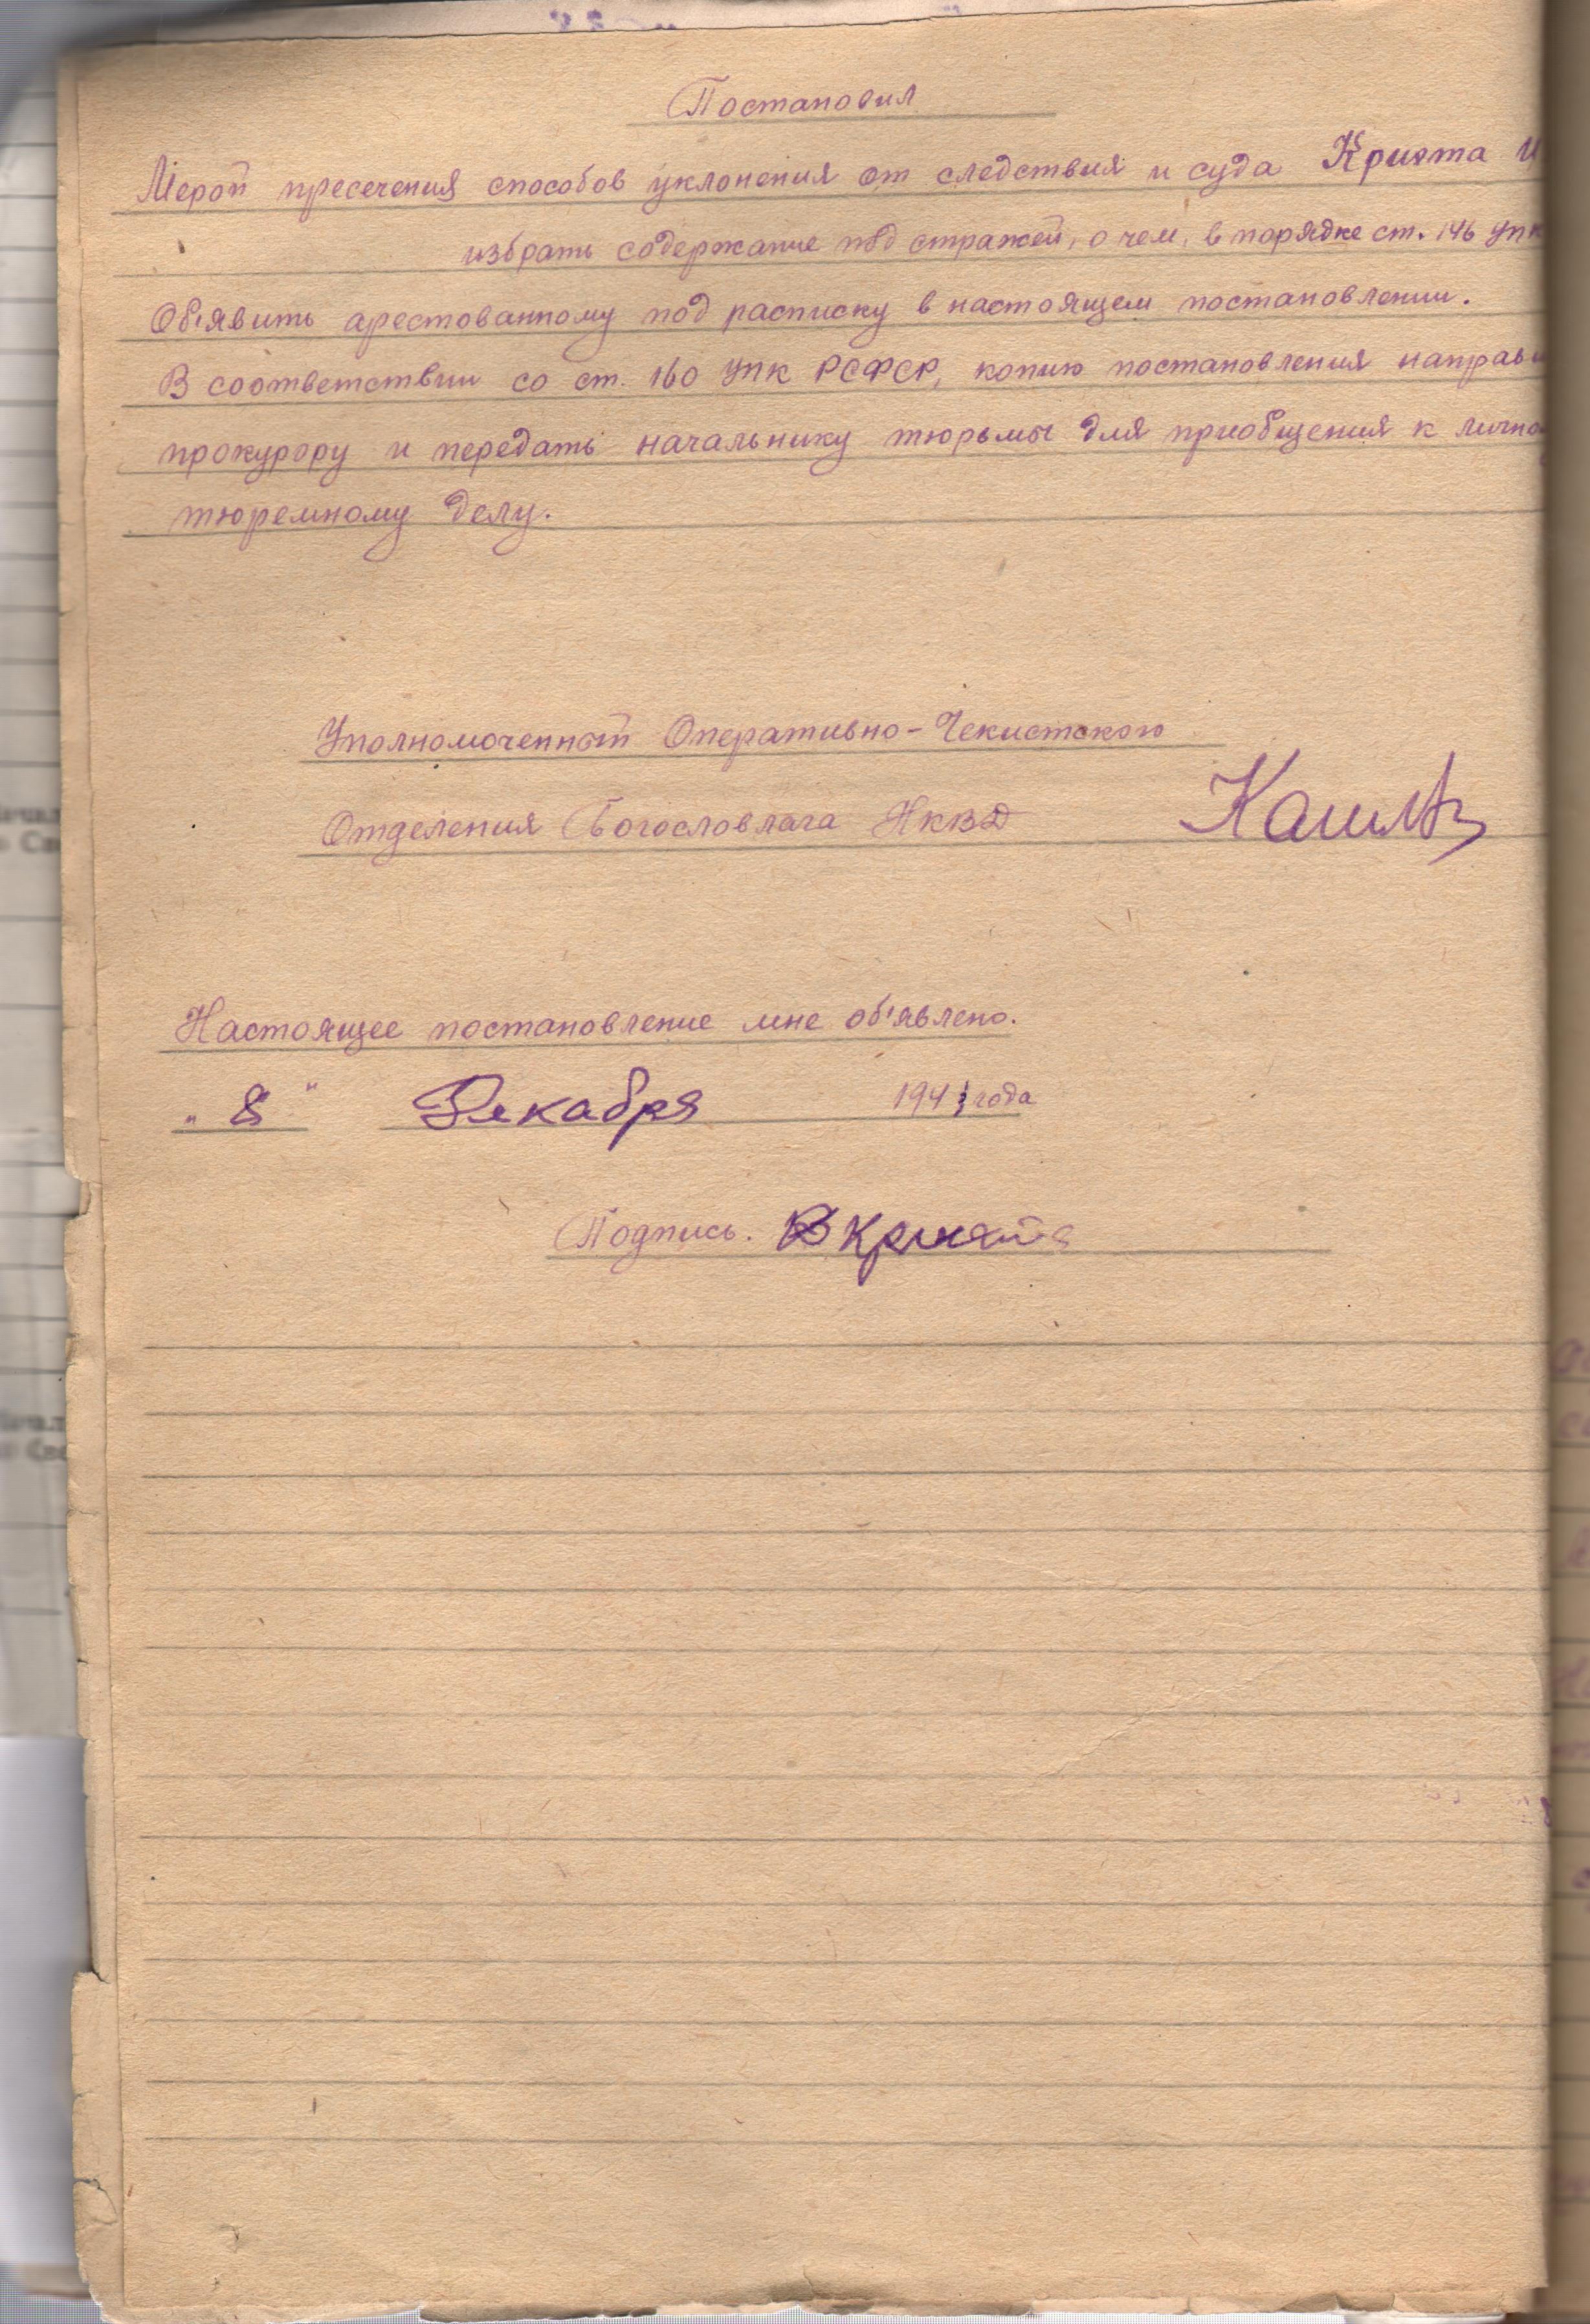 Постановил
Мерой пресечения способов уклонения от следствия и суда Криста И
избрать содержание под стражей, о чем, в порядке ст. 146 УПК
Об'явить арестованному под расписку в настоящем постановлении.
В соответствии со ст. 160 УПК РСФСР, копию постановления направи
прокурору и передать начальнику тюрьмы для приобщения к лично
тюремному делу.
Уполномоченный Оперативно-Чекистского
Отделения Богословлага НКВД
Настоящее постановление мне об'явлено.
„8" Декабря 194 года
Подпись.